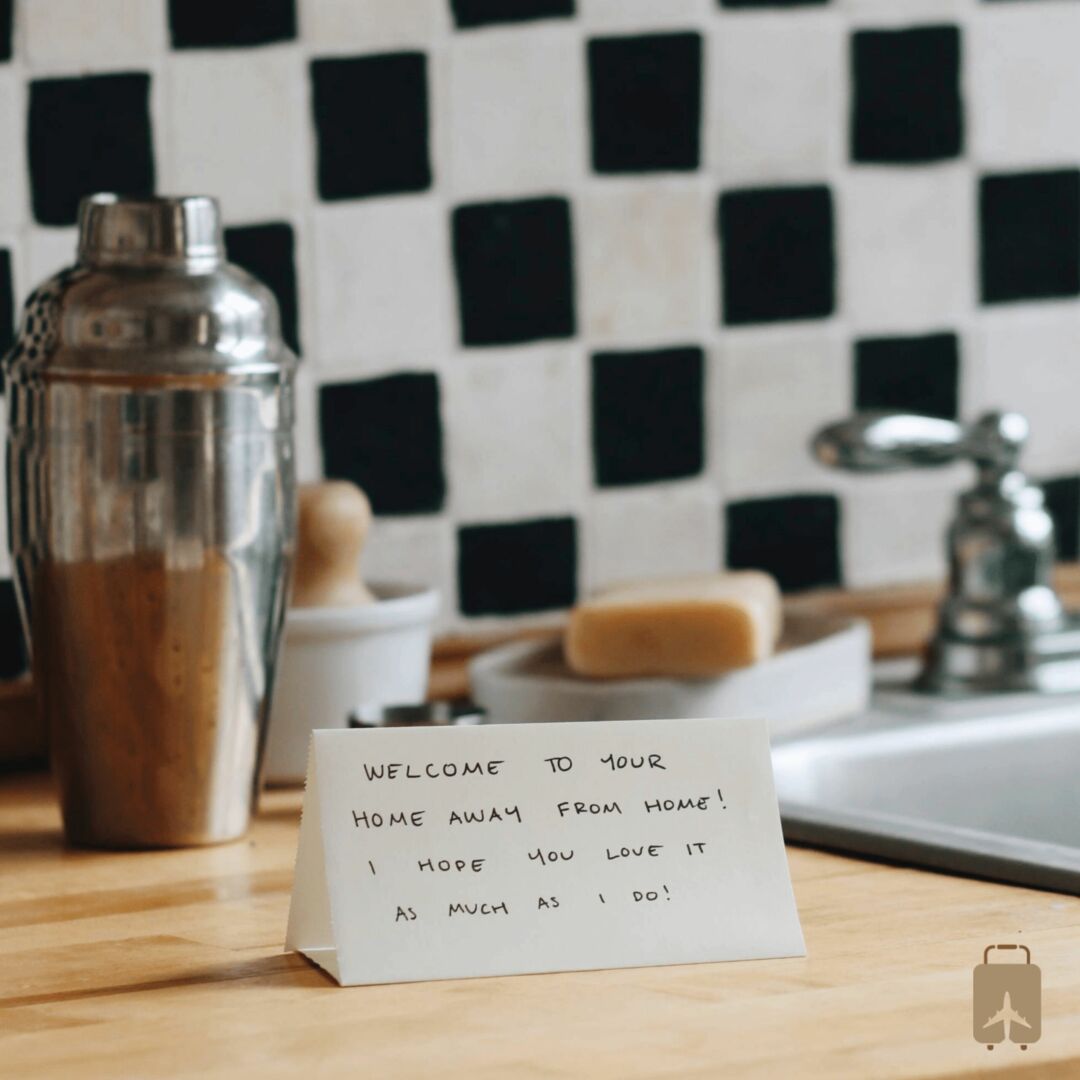 WELCOME TO YOUR
HOME AWAY FROM HOME!
I HOPE YOU LOVE IT
AS MUCH AS I DO!